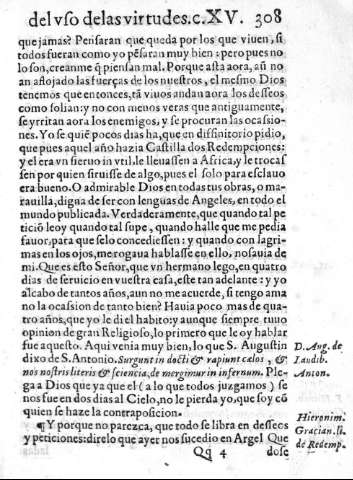 del vso de las virtudes. c. XV. 308
que jamas? Pensaran que queda por los que viuen, si
todos fueran como yo pẽsaran muy bien: pero pues no
lo son, creanme q̃ piensan mal. Porque asta aora, aũ no
an añojado las fuerças de los nuestros, el mesmo Dios
tenemos que entonces, tã viuos andan aora los desseos
como solian: y no con menos veras que antiguamente,
se yrritan aora los enemigos, y se procuran las ocasio-
nes. Yo se quiẽ pocos dias ha, que en diffinitorio pidio,
que pues aquel año hazia Castilla dos Redempciones:
y el era vn sieruo in vtil, le lleuassen a Africa, y le trocas
sen por quien siruisse de algo, pues el solo para esclauo
era bueno. O admirable Dios en todas tus obras, o ma-
rauilla, digna de ser con lenguas de Angeles, en todo el
mundo publicada. Verdaderamente, que quando tal pe
ticiõ leoy quando tal supe, quando halle que me pedia
fauor, para que selo concediessen: y quando con lagri-
mas en los ojos, me rogaua hablasse en ello, no sauia de
mi. Que es esto Señor, que vn hermano lego, en quatro
dias de seruicio en vuestra casa, este tan adelante: y yo
alcabo de tantos años, aun no me acuerde, si tengo ama
no la ocassion de tanto bien? Hauia poco mas de qua-
tro años, que yo le di el habito: y aunque siempre tuuo
opinion de gran Religioso, lo primero que le oy hablar
fue aquesto. Aqui venia muy bien, lo que S. Augustin
dixo de S. Antonio. Surgunt in docti & rapiunt cælos, &
nos nostris literis & sciencia, de mergimur in infernum. Ple-
ga a Dios que ya que el (a lo que todos juzgamos) se
nos fue en dos dias al Cielo, no le pierda yo, que soy cõ
quien se haze la contraposicion.
D. Aug. de
laudib.
Anton.
¶ Y porque no parezca, que todo se libra en desseos
y peticiones: direlo que ayer nos sucedio en Argel Que
Hieronim.
Gracian. li.
de Redemp.
Qq 4 dose